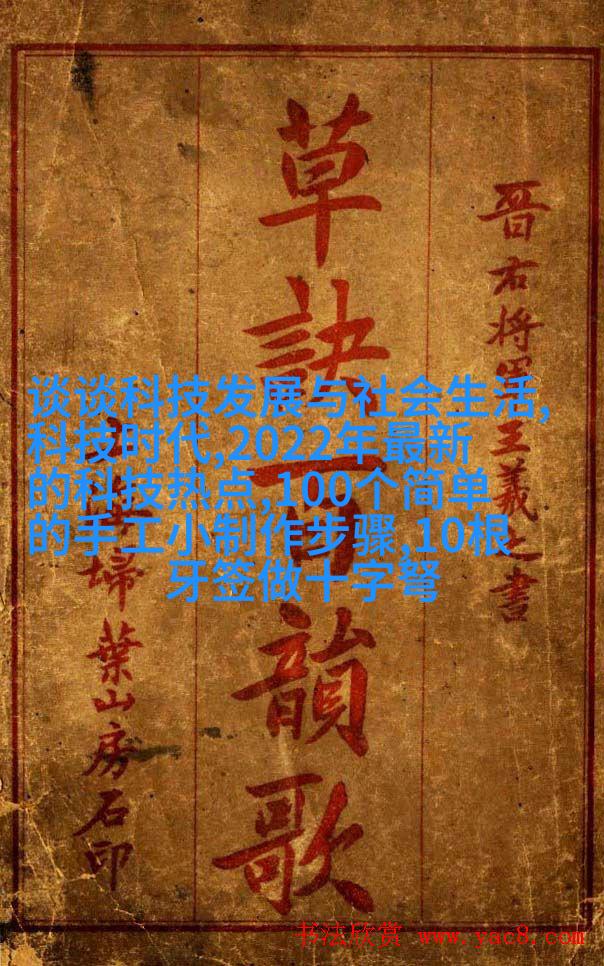 晋右将軍王羲之書
草訣百韻歌
掃葉山房石印
谈谈科技发展与社会生活,
科技时代,2022年最新
的科技热点,100个简单
的手工小制作步骤,10根
牙签做十字弩
书法欣赏 www.yac8.com